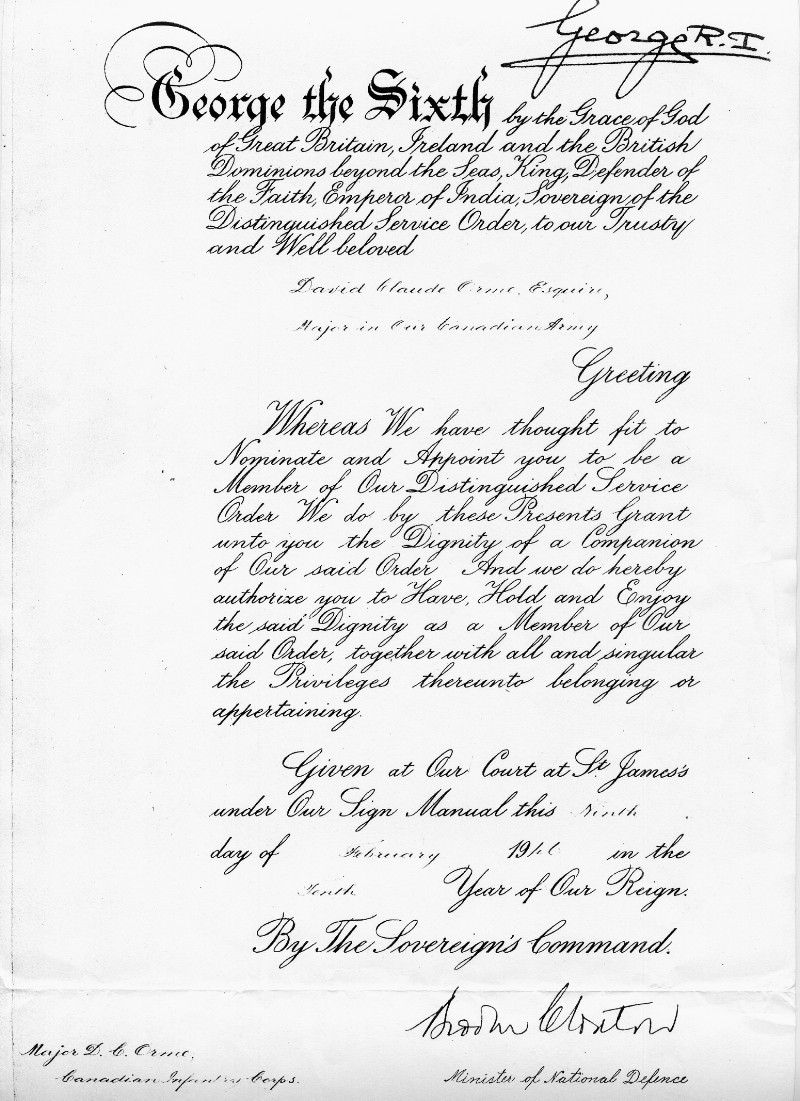 George R.I.
George the Sixth by the Grace of God
of Great Britain, Ireland and the British
Dominions beyond the Seas, King, Defender of
the Faith, Emperor of India, Sovereign of the
Distinguished Service Order, to our Trusty
and Well beloved
David Claude Orme, Esquire,
Major in Our Canadian Army
Greeting
Whereas We have thought fit to
Nominate and Appoint you to be a
Member of Our Distinguished Service
Order We do by these Presents Grant
unto you the Dignity of a Companion
of Our said Order And we do hereby
authorize you to Have, Hold and Enjoy
the said Dignity as a Member of Our
said Order, together with all and singular
the Privileges thereunto belonging or
appertaining.
Given at Our Court at St. James's
under Our Sign Manual this Ninth
day of February 1946 in the
Tenth Year of Our Reign.
By The Sovereign's Command.
Major D. C. Orme,
Canadian Infantry Corps.
Minister of National Defence